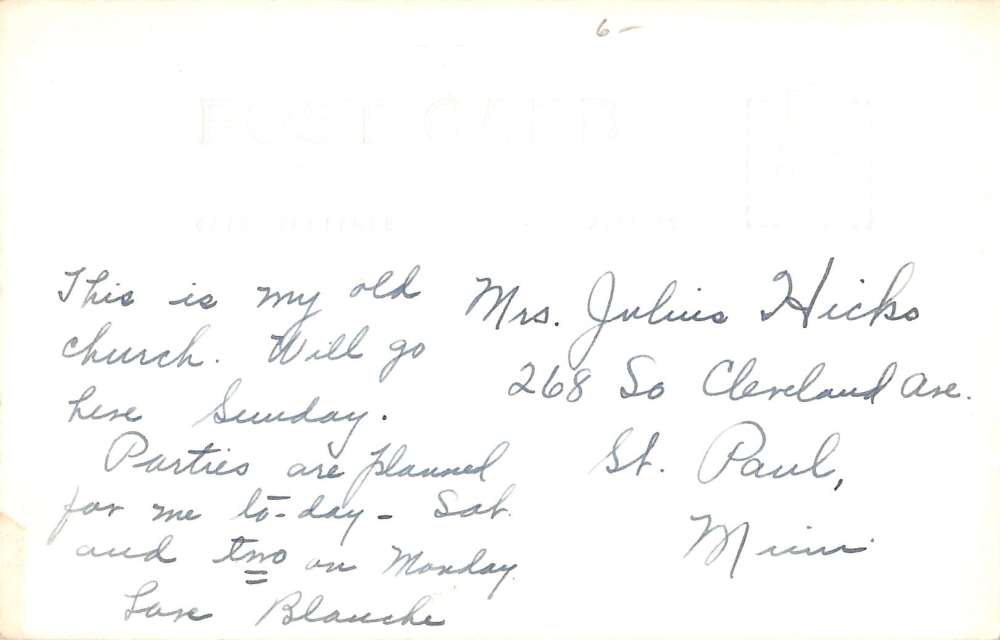 6-
POST CARD
This is my old
church. Will go
here Sunday.
Parties are planned
for me to-day - Sat.
and two on Monday.
Love Blanche
Mrs. Julius Hicks
268 So Cleveland Ave.
St. Paul,
Minn.